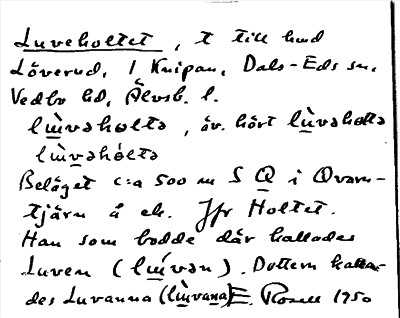 Luveholtet, t till hmd
Löverud, 1 Knipan, Dals-Eds sn,
Vedbo hd, Älvsb. l.
lùvəhɷltə, äv. hört lùvəhɷltə
lùvəhɷ́ltə
Beläget c:a 500 m S Q i Qvarn-
tjärn å ek. Jfr Holtet.
Han som bodde där kallades
Luven (lúvən). Dottern kalla-
des Luvanna (lùvana) E. Rosell 1950